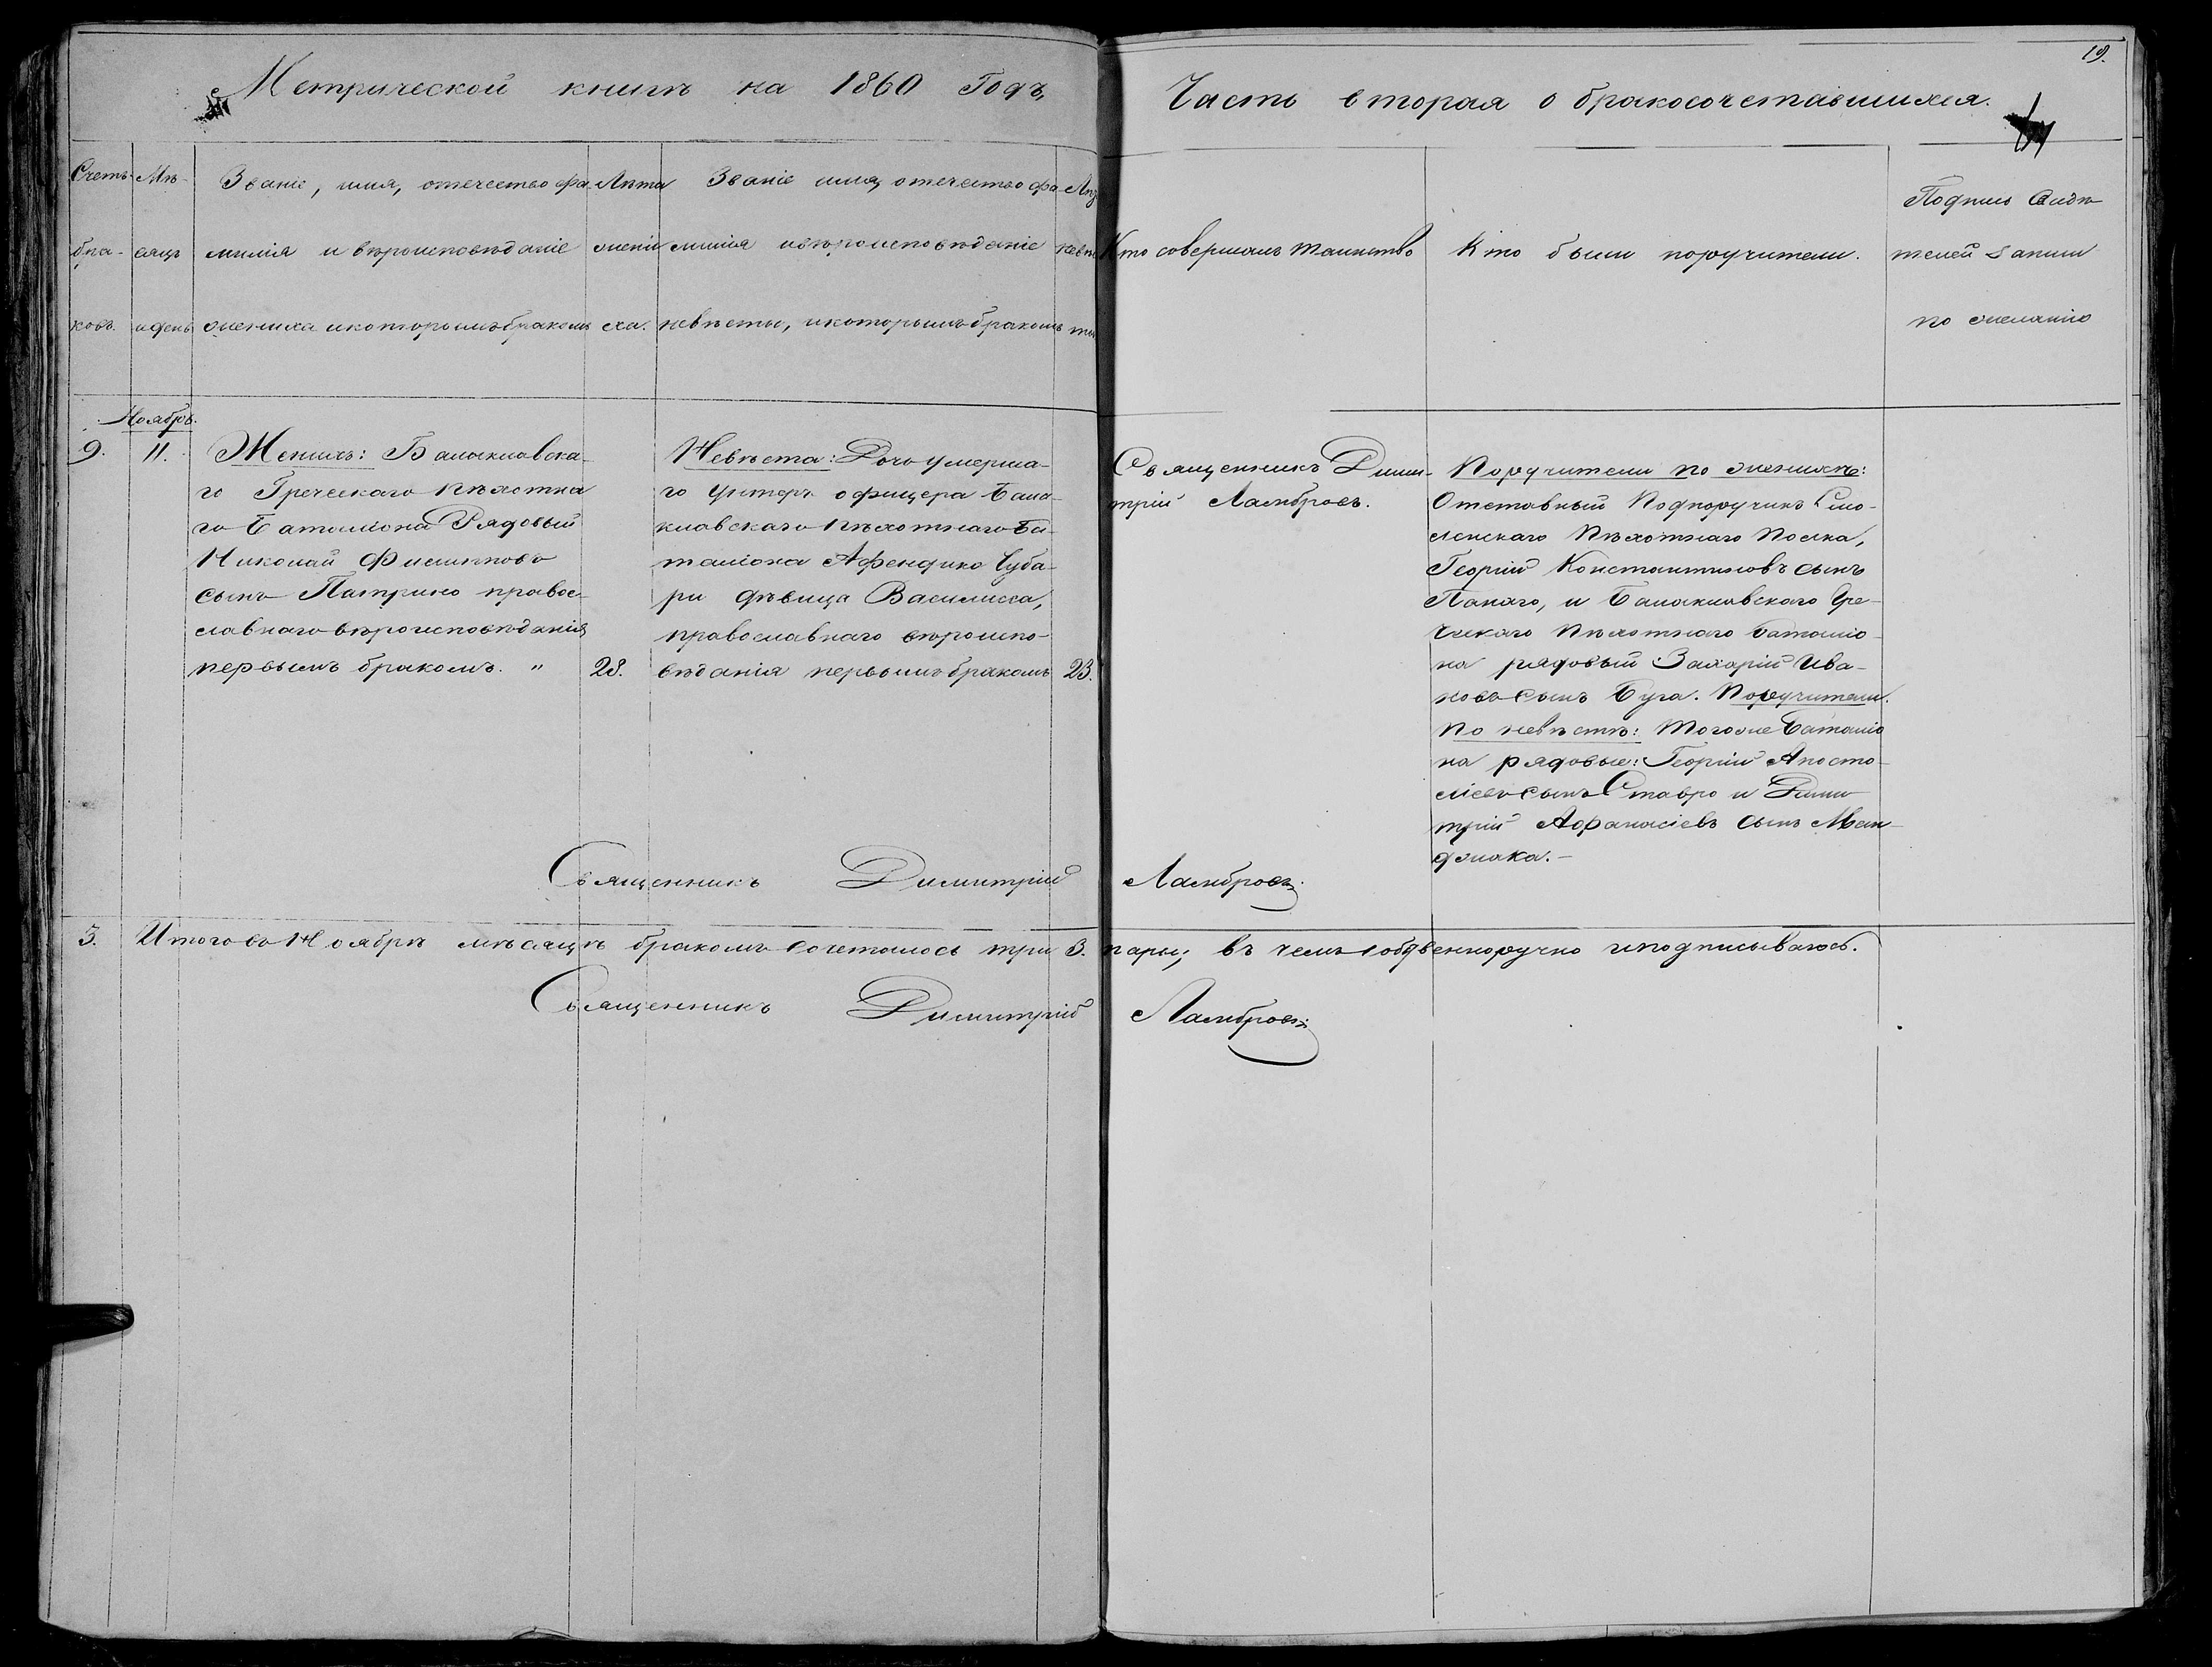 19.
Метрической книгѣ на 1860 Годъ,
Часть вторая о бракосочетавшихся.
Счетъ
бра-
ковъ.
Мѣ-
сяцъ
и день
Званіе, имя, отечество фа-
милія и вѣроисповѣданіе
жениха и которымъ бракомъ
Лѣта
жени
ха.
Званіе имя, отечество фа-
милія и вѣроисповѣданіе
невѣсты, и которымъ бракомъ
Кто совершалъ таинство
Кто были поручители.
Подпись Свидѣ
телей записи
по желанію
Ноябрь.
9.
11.
Женихъ: Балаклавска-
го Греческаго пѣхотна
го Баталіона Рядовый
Николай Филипповъ
сынъ Патрино правос-
славнаго вѣроисповѣданія
первымъ бракомъ. "
28.
Невѣста: Дочь умерша-
го Унтеръ офицера Бала-
клавскаго пѣхотнаго Ба-
таліона Афендико Чуба-
ри дѣвица Василиса,
православнаго вѣроиспо-
вѣданія первымъ бракомъ
23.
Священникъ Дими-
трій Ламбровъ.
Поручители по женихѣ:
Отставный Подпоручикъ Смо-
ленскаго Пѣхотнаго Полка,
Георгій Константиновъ сынъ
Панаго, и Балаклавскаго Гре-
ческаго Пѣхотнаго Баталіо-
на рядовый Захарій Ива-
новъ сынъ Буга. Поручители.
по невѣстѣ: Того же Баталіо
на рядовые: Георгій Апосто-
ліевъ сынъ Ставро и Дими
трій Афанасіевъ сынъ Ман-
джака.-
Священникъ Димитрій Ламбровъ.
3. Итого въ Ноябрѣ мѣсяцѣ бракомъ сочеталось три 3. пары; въ чемъ собственноручно и подписываюсь.
Священникъ Димитрій Ламбровъ.